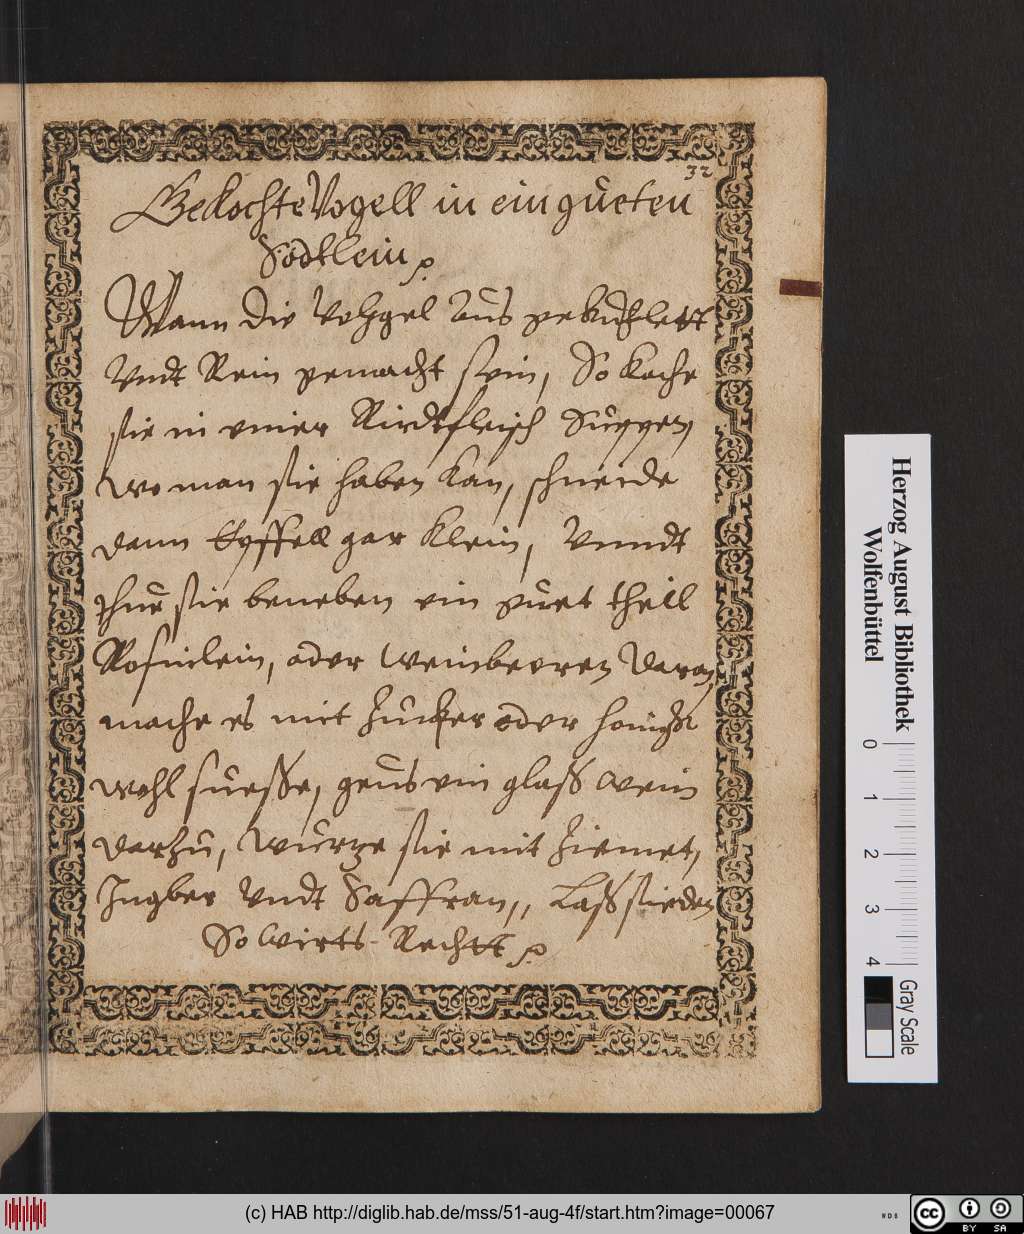 32
Gekochte Vogell in ein gueten
Sodtlein
Wann die Vohgel aus gebuzlett
Undt Rein gemacht sein, So koche
sie in einer Rindtfleisch Suppen,
wo man sie haben kan, schneide
dann Epffell gar klein, Unndt
thue sie beneben ein guet theil
Rosinlein, oder Weinbeeren daran,
mache es mit Zucker oder honigh
wohl suesse, geus ein glass Wein
darzu, Wurtze sie mit Ziemet,
Ingber Undt Saffran, Lass sieden
So Wirts Rechtt
Herzog August Bibliothek
Wolfenbüttel
0 1 2 3 4
Gray Scale
(c) HAB http://diglib.hab.de/mss/51-aug-4f/start.htm?image=00067
WDB
cc BY SA